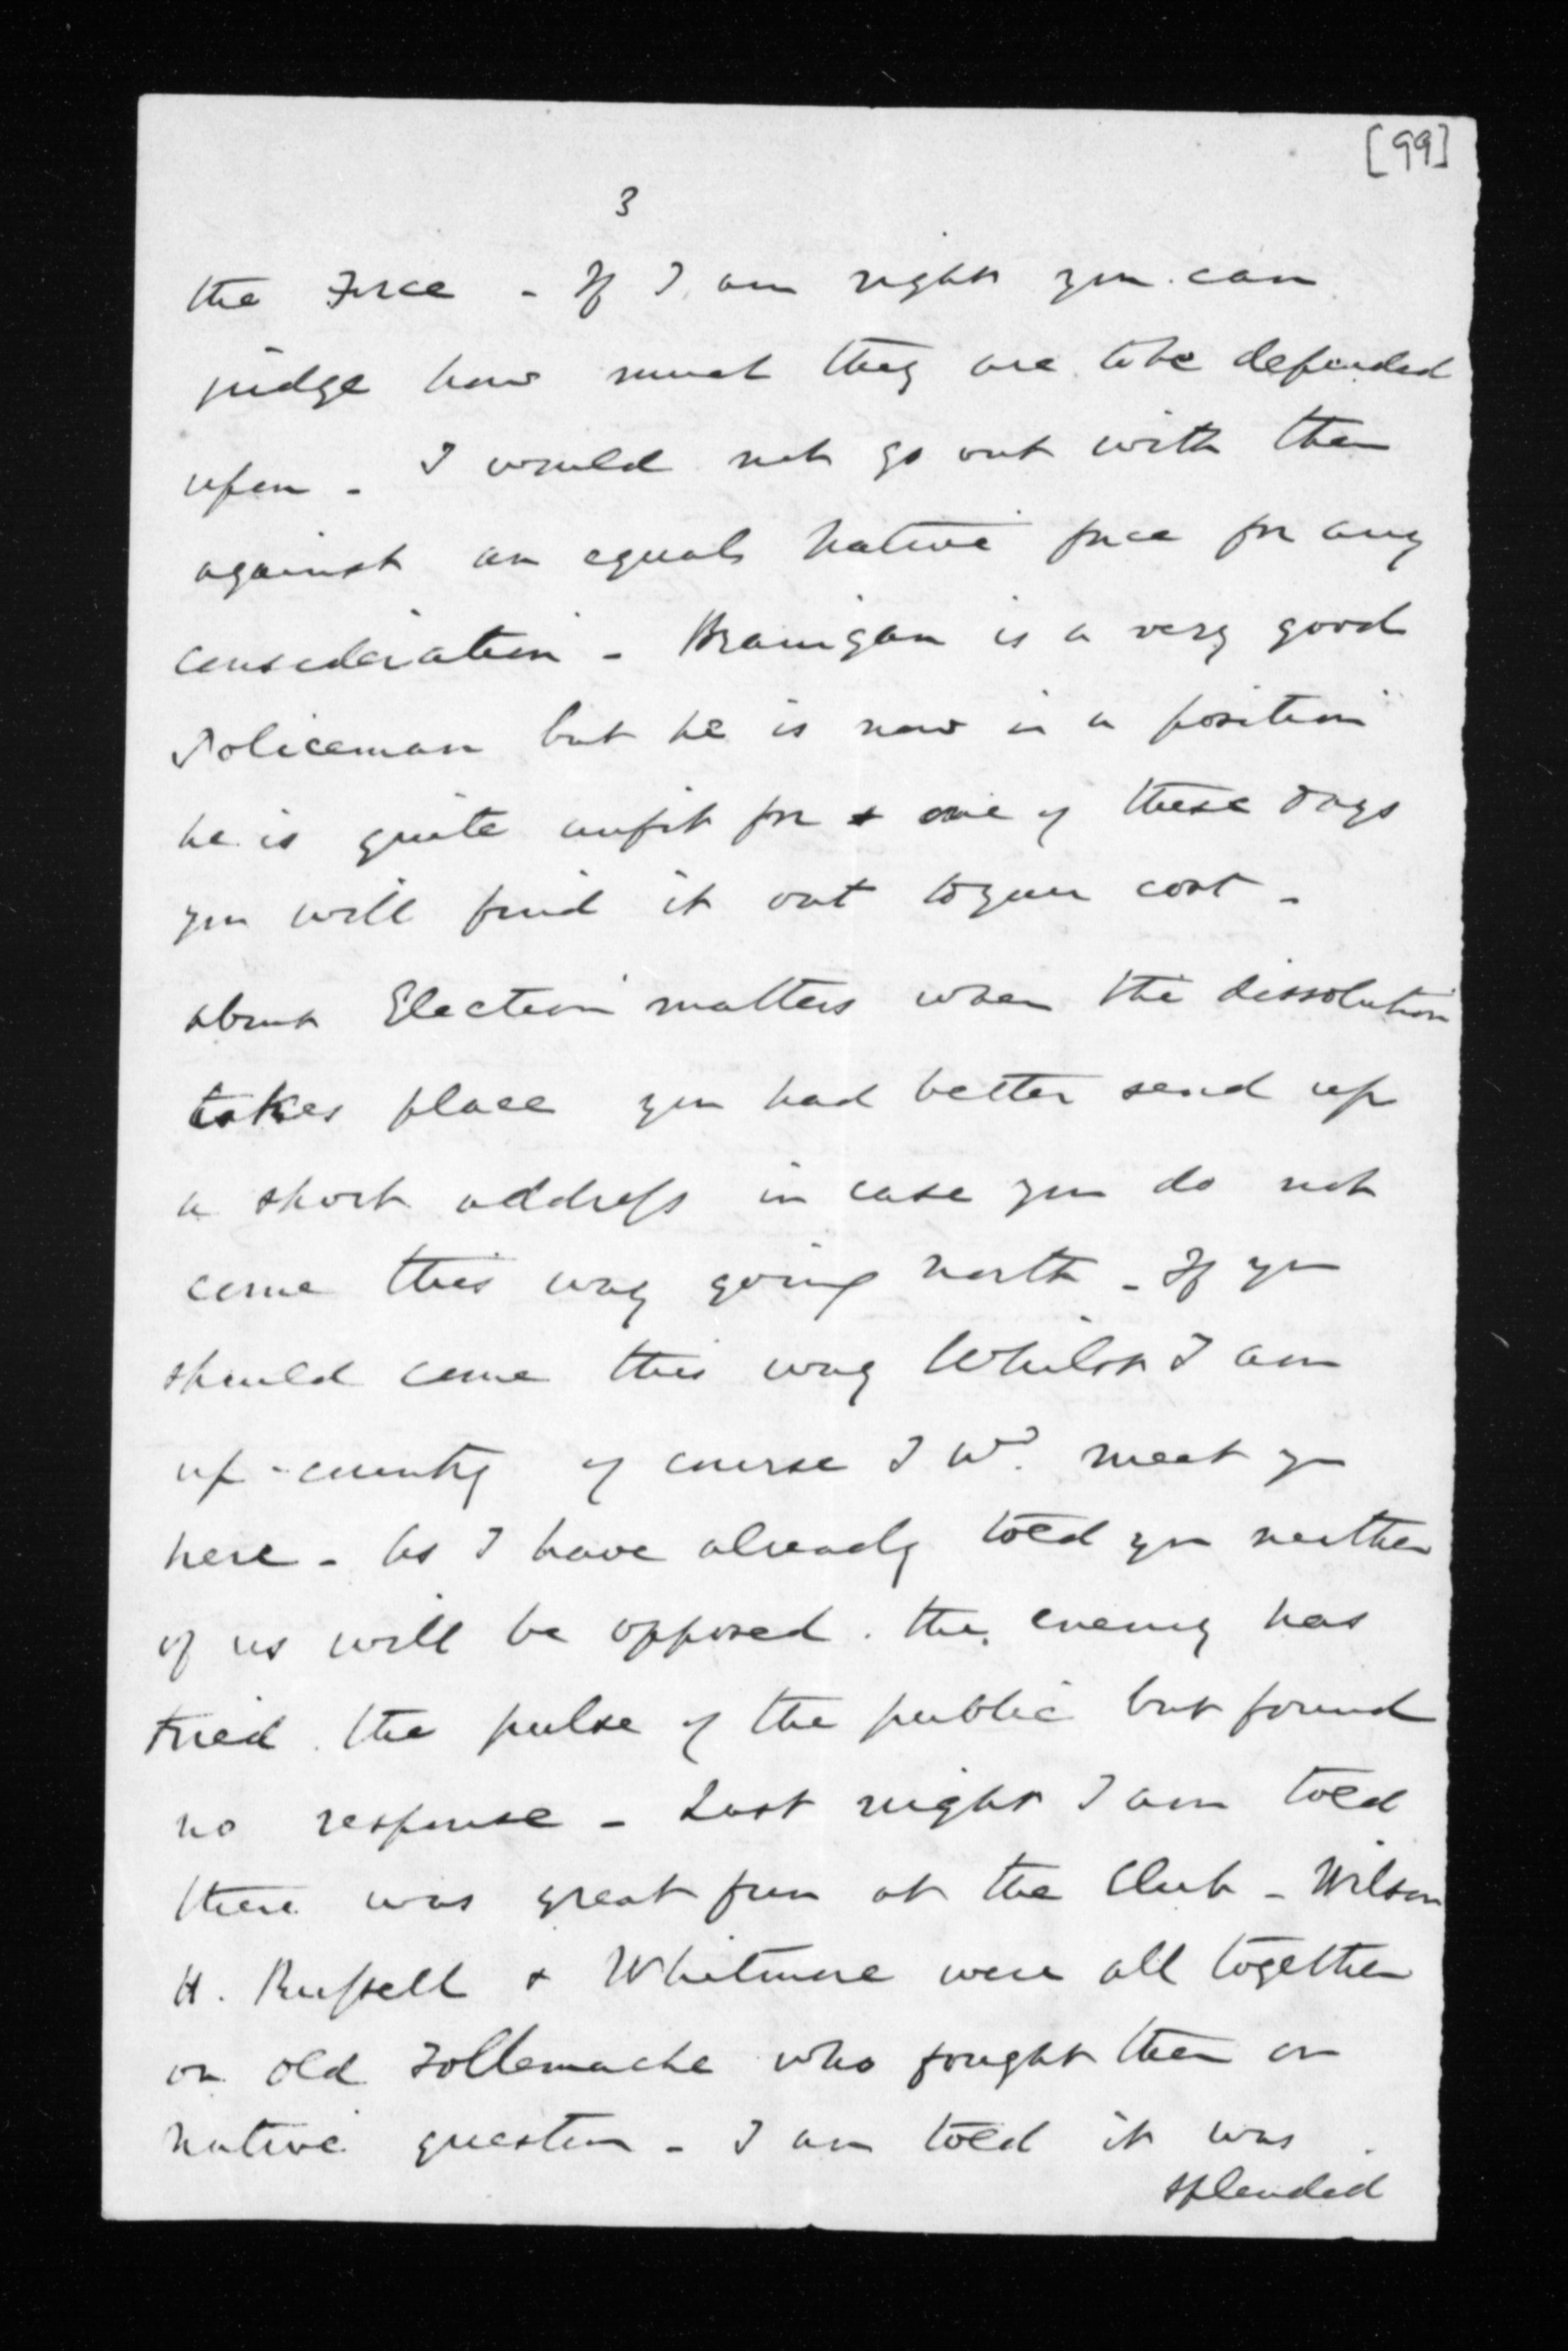 [99]
3
the Force - If I am right you can
judge how much they are to be depended
upon - I would not go out with them
against an equal Native force for any
consideration - Branigan is a very good
Policeman but he is now in a position
he is quite unfit for & one of these days
you will find it out to your cost -
about Election matters when the dissolution
takes place you had better send up
a short address in case you do not
come this way going North - If you
should come this way Whilst I am
up-country of course I wd. meet you
here - As I have already told you neither
of us will be opposed. the enemy has
tried the pulse of the public but found
no response - Last night I am told
there was great fun at the Club - Wilson
H. Russell & Whitmore were all together
on old Tollemache who fought them on
Native question - I am told it was
splendid